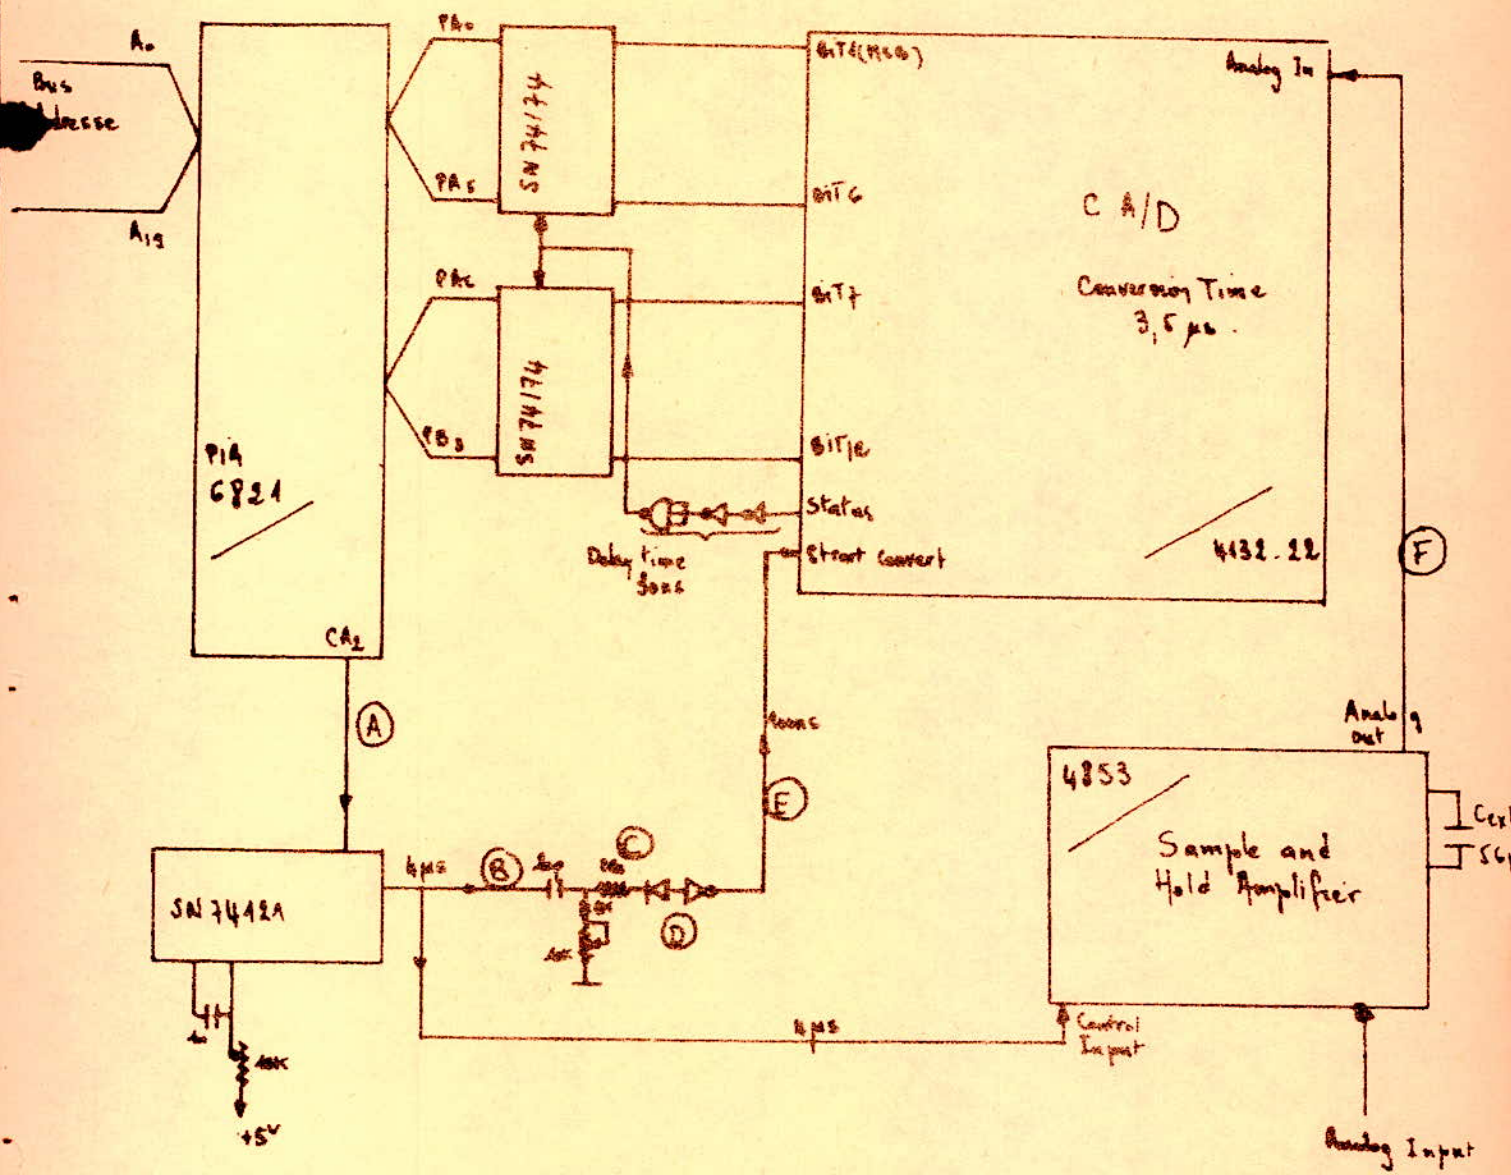 A₀
Bus
A₁₉
PIA
6821
CA₂
PA₀
PA₅
SN74174
PA₆
PB₃
SN74174
BiT1(MSB)
BiT6
BiT7
BiT12
Status
Start Convert
Analog In
C A/D
Conversion Time
4132-22
Delay time
A
B
C
D
E
F
SN74121
4µs
10K
+5V
4µs
4853
Sample and
Hold Amplifier
Analog
out
Control
Input
Analog Input